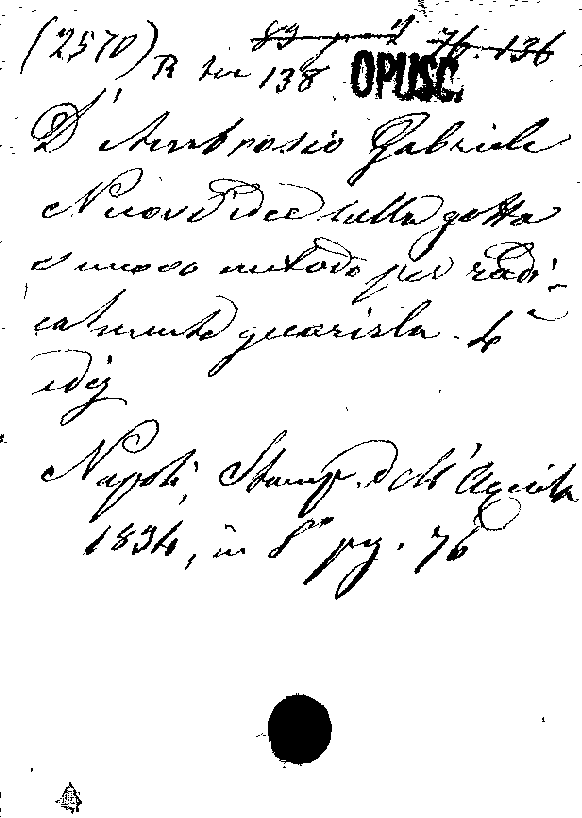 (2570) R ter 138 OPUSC.
D'Ambrosio Gabriele
Nuove idee sulla gotta
e nuovo metodo per radi-
calmente guarirla. 4ª
ediz
Napoli, Stamp. dell'Aquila
1834, in 8° pg. 76